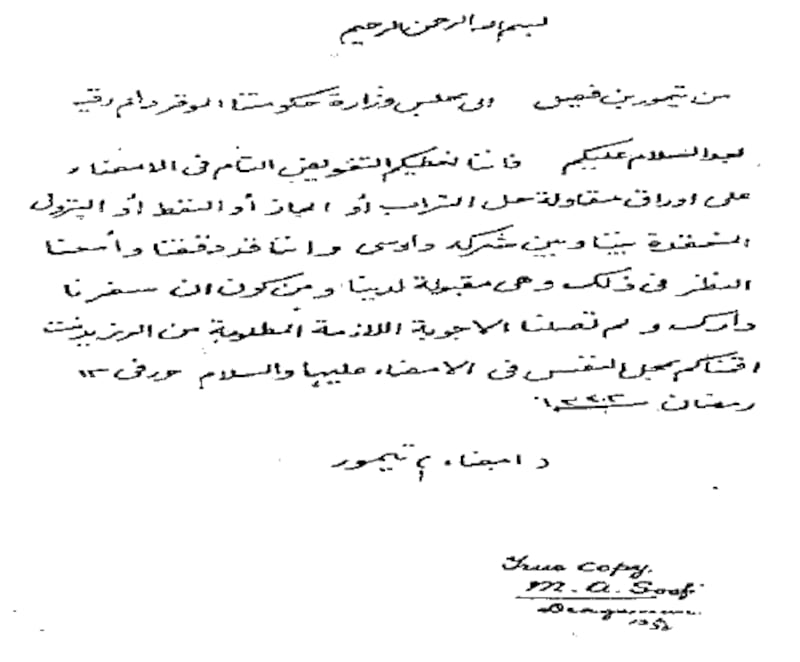 بسم الله الرحمن الرحيم
من تيمور بن فيصل الى مجلس وزارة حكومتنا الموقر دام رقيه
بعد السلام عليكم فاننا نعطيكم التفويض التام في الامضاء
على اوراق مقاولة حل التراب أو الجاز أو النفط أو البترول
المنعقدة بيننا وبين شركة دارسى واننا قد دققنا وأمعنا
النظر في ذلك وهي مقبولة لدينا ومن كون ان سفرنا
دارك ولم تصلنا الاجوبة اللازمة المطلوبة من الرزيدنت
اقمناكم بمحل النفس في الامضاء عليها والسلام حرر في ١٣
رمضان
امضاء تيمور
True Copy.
M. A. Soofi